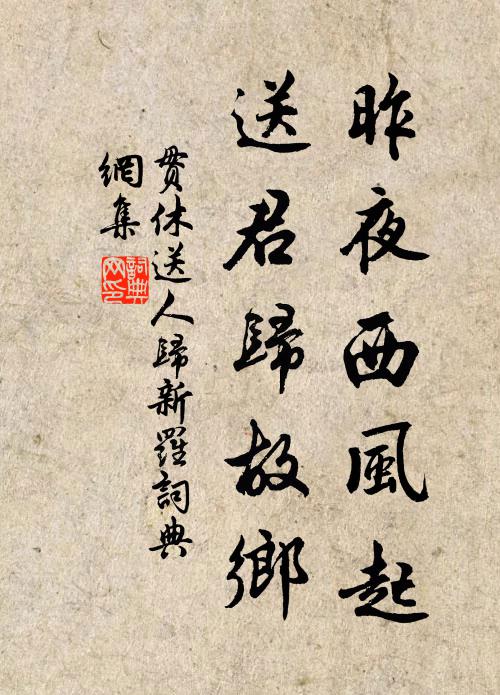 昨夜西風起
送君歸故鄉
貫休送人歸新羅詞典
網集
詞典
网印